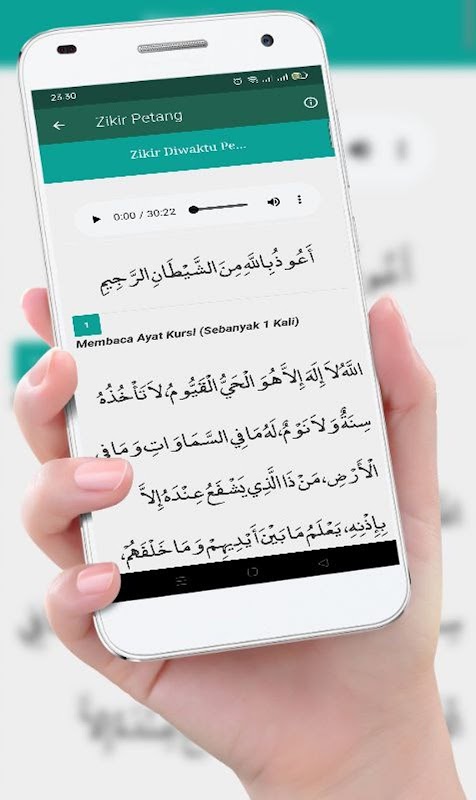 23.30
Zikir Petang
Zikir Diwaktu Pe...
0:00 / 30:22
أَعُوذُبِاللَّهِ مِنَ الشَّيْطَانِ الرَّجِيمِ
1
Membaca Ayat Kursi (Sebanyak 1 Kali)
اللَّهُ لاَ إِلَهَ إِلاَّ هُوَ الْحَيُّ الْقَيُّومُ، لاَ تَأْخُذُهُ
سِنَةٌ وَلاَ نَوْمٌ، لَهُ مَا فِي السَّمَاوَاتِ وَمَا فِي
الْأَرْضِ، مَنْ ذَا الَّذِي يَشْفَعُ عِنْدَهُ إِلاَّ
بِإِذْنِهِ، يَعْلَمُ مَا بَيْنَ أَيْدِيهِمْ وَمَا خَلْفَهُمْ،